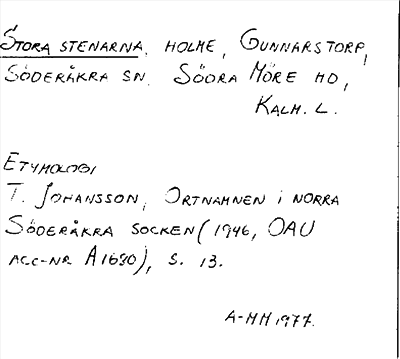 STORA STENARNA, HOLME, GUNNARSTORP,
SÖDERÅKRA SN. SÖDRA MÖRE HD,
KALM. L.
ETYMOLOGI
T. JOHANSSON, ORTNAMNEN I NORRA
SÖDERÅKRA SOCKEN (1946, OAU
ACC-NR A1680), S. 13.
A-MH 1977.